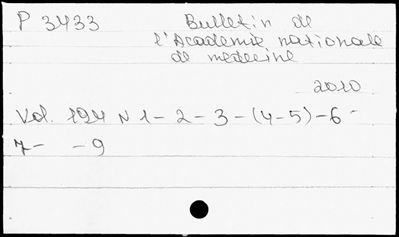 P 3433 Bulletin de
l'Academie nationale
de medecine
2010
Vol. 194 N 1 - 2 - 3 - (4-5) - 6 -
7 - - 9